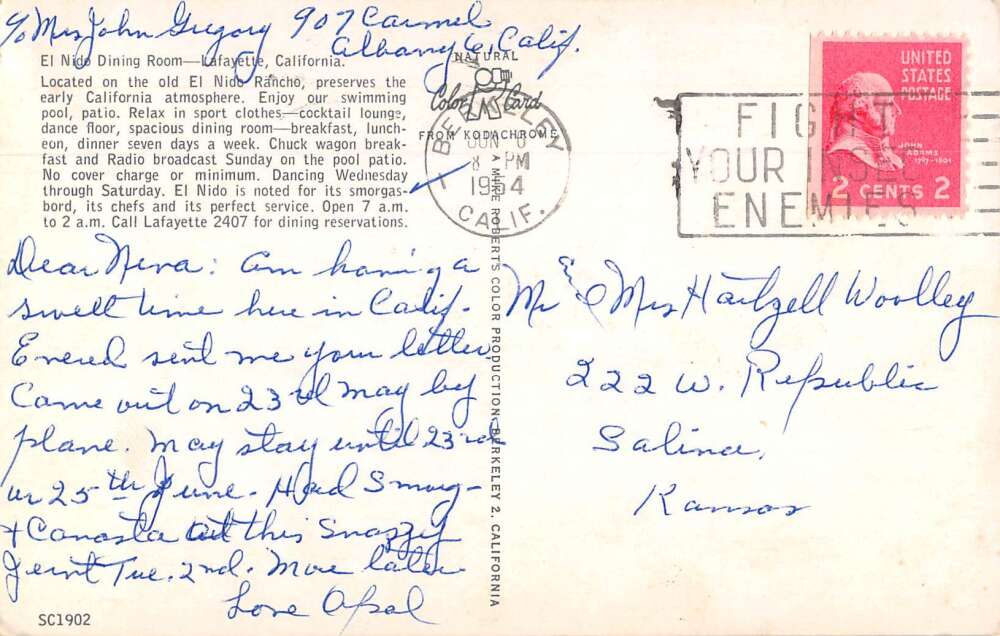 c/o Mrs John Gregory 907 Carmel
Albany 6, Calif.
El Nido Dining Room—Lafayette, California.
Located on the old El Nido Rancho, preserves the
early California atmosphere. Enjoy our swimming
pool, patio. Relax in sport clothes—cocktail lounge,
dance floor, spacious dining room—breakfast, lunch-
eon, dinner seven days a week. Chuck wagon break-
fast and Radio broadcast Sunday on the pool patio.
No cover charge or minimum. Dancing Wednesday
through Saturday. El Nido is noted for its smorgas-
bord, its chefs and its perfect service. Open 7 a.m.
to 2 a.m. Call Lafayette 2407 for dining reservations.
Dear Neva: Am having a
swell time here in Calif.
sent me your letter
Came out on 23rd May by
plane. May stay until 23rd
or 25th June. Had Smorg-
+ Canasta at this Snazzy
Joint Tue. 2nd. More later
Love Opal
SC1902
NATURAL
Color Card
FROM KODACHROME
A MIKE ROBERTS COLOR PRODUCTION, BERKELEY 2, CALIFORNIA
BERKELEY
JUN
8 PM
CALIF.
FIGHT
YOUR INSECT
ENEMIES
UNITED
STATES
POSTAGE
JOHN
ADAMS
1797-1801
2 CENTS 2
Mr & Mrs Hartzell Woolley
222 W. Republic
Salina,
Kansas